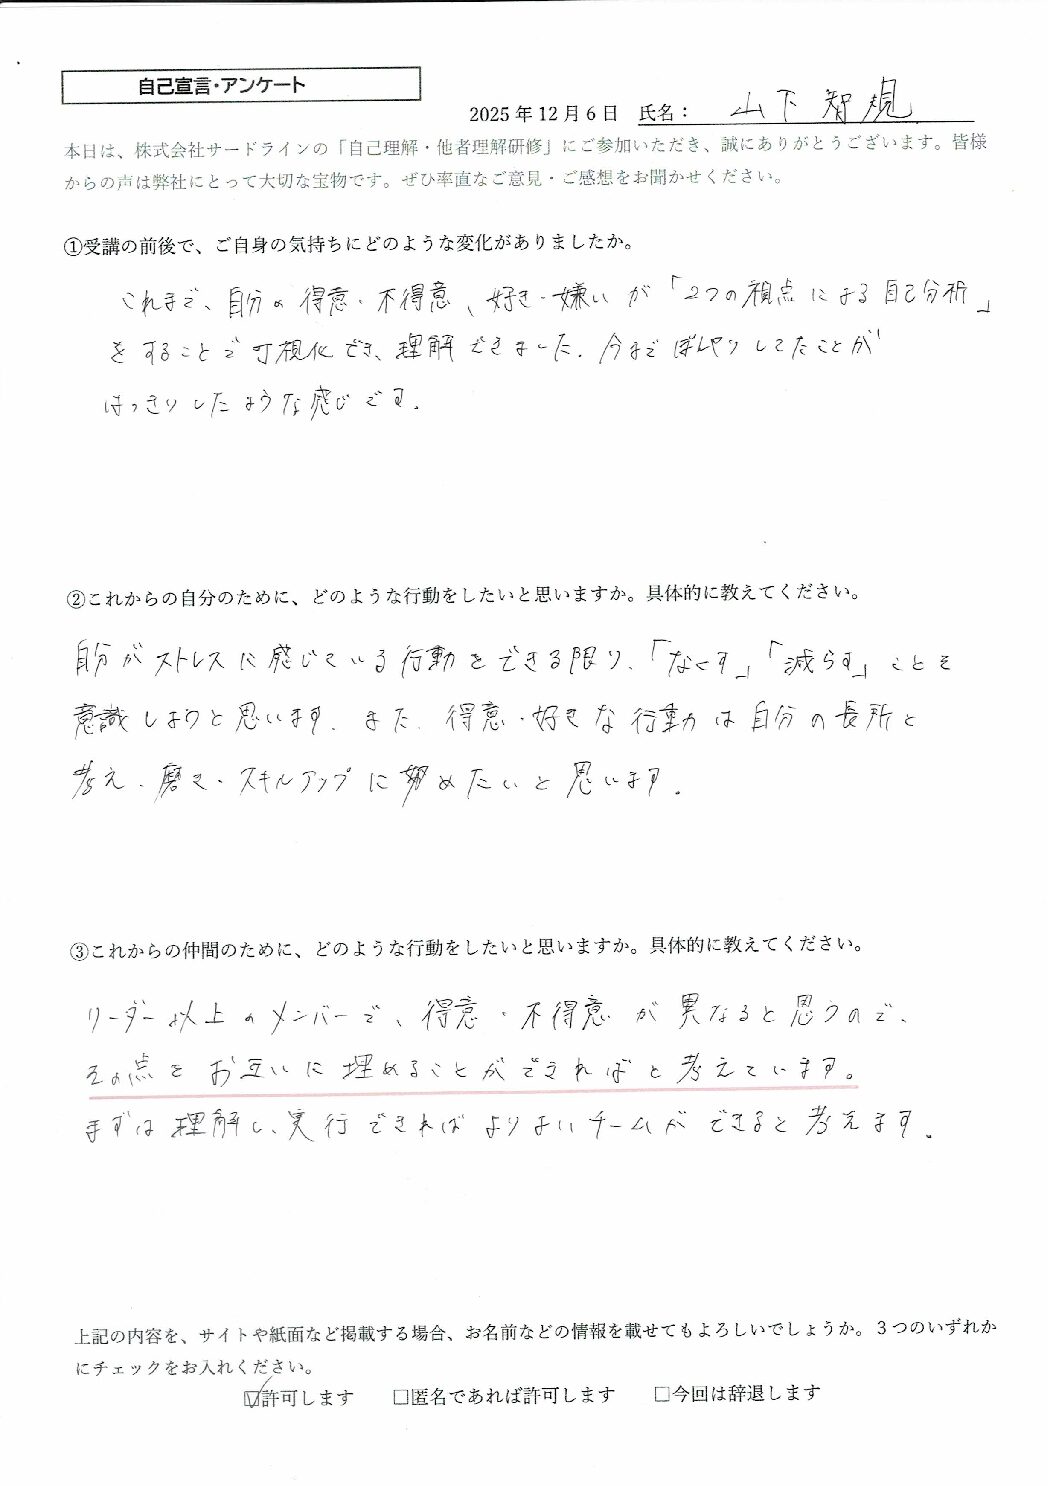 自己宣言・アンケート
2025年12月6日 氏名： 山下智規
本日は、株式会社サードラインの「自己理解・他者理解研修」にご参加いただき、誠にありがとうございます。皆様
からの声は弊社にとって大切な宝物です。ぜひ率直なご意見・ご感想をお聞かせください。
①受講の前後で、ご自身の気持ちにどのような変化がありましたか。
これまで、自分の得意・不得意、好き・嫌いが「2つの視点による自己分析」
をすることで可視化でき、理解できました。今までぼんやりしてたことが
はっきりしたような感じです。
②これからの自分のために、どのような行動をしたいと思いますか。具体的に教えてください。
自分がストレスに感じている行動をできる限り、「なくす」「減らす」ことを
意識しようと思います。また、得意・好きな行動は自分の長所と
考え、磨き・スキルアップに努めたいと思います。
③これからの仲間のために、どのような行動をしたいと思いますか。具体的に教えてください。
リーダー以上のメンバーで、得意・不得意が異なると思うので、
その点をお互いに埋めることができればと考えています。
まずは理解し、実行できればよりよいチームができると考えます。
上記の内容を、サイトや紙面など掲載する場合、お名前などの情報を載せてもよろしいでしょうか。３つのいずれか
にチェックをお入れください。
☑許可します □匿名であれば許可します □今回は辞退します